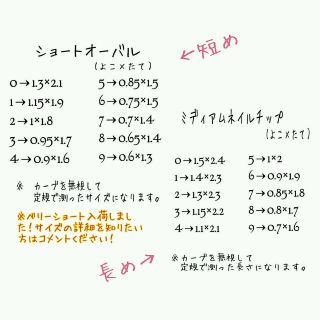 ショートオーバル
(よこ×たて)
←短め
0→1.3×2.1
1→1.15×1.9
2→1×1.8
3→0.95×1.7
4→0.9×1.6
5→0.85×1.5
6→0.75×1.5
7→0.7×1.4
8→0.65×1.4
9→0.6×1.3
※ カーブを無視して
定規で測ったサイズになります。
※ベリーショート入荷しまし
た!サイズの詳細を知りたい
方はコメントください!
ミディアムネイルチップ
(よこ×たて)
0→1.5×2.4
1→1.4×2.3
2→1.3×2.3
3→1.15×2.2
4→1.1×2.1
5→1×2
6→0.9×1.9
7→0.85×1.8
8→0.8×1.7
9→0.7×1.6
長め→
※カーブを無視して
定規で測った長さになります。